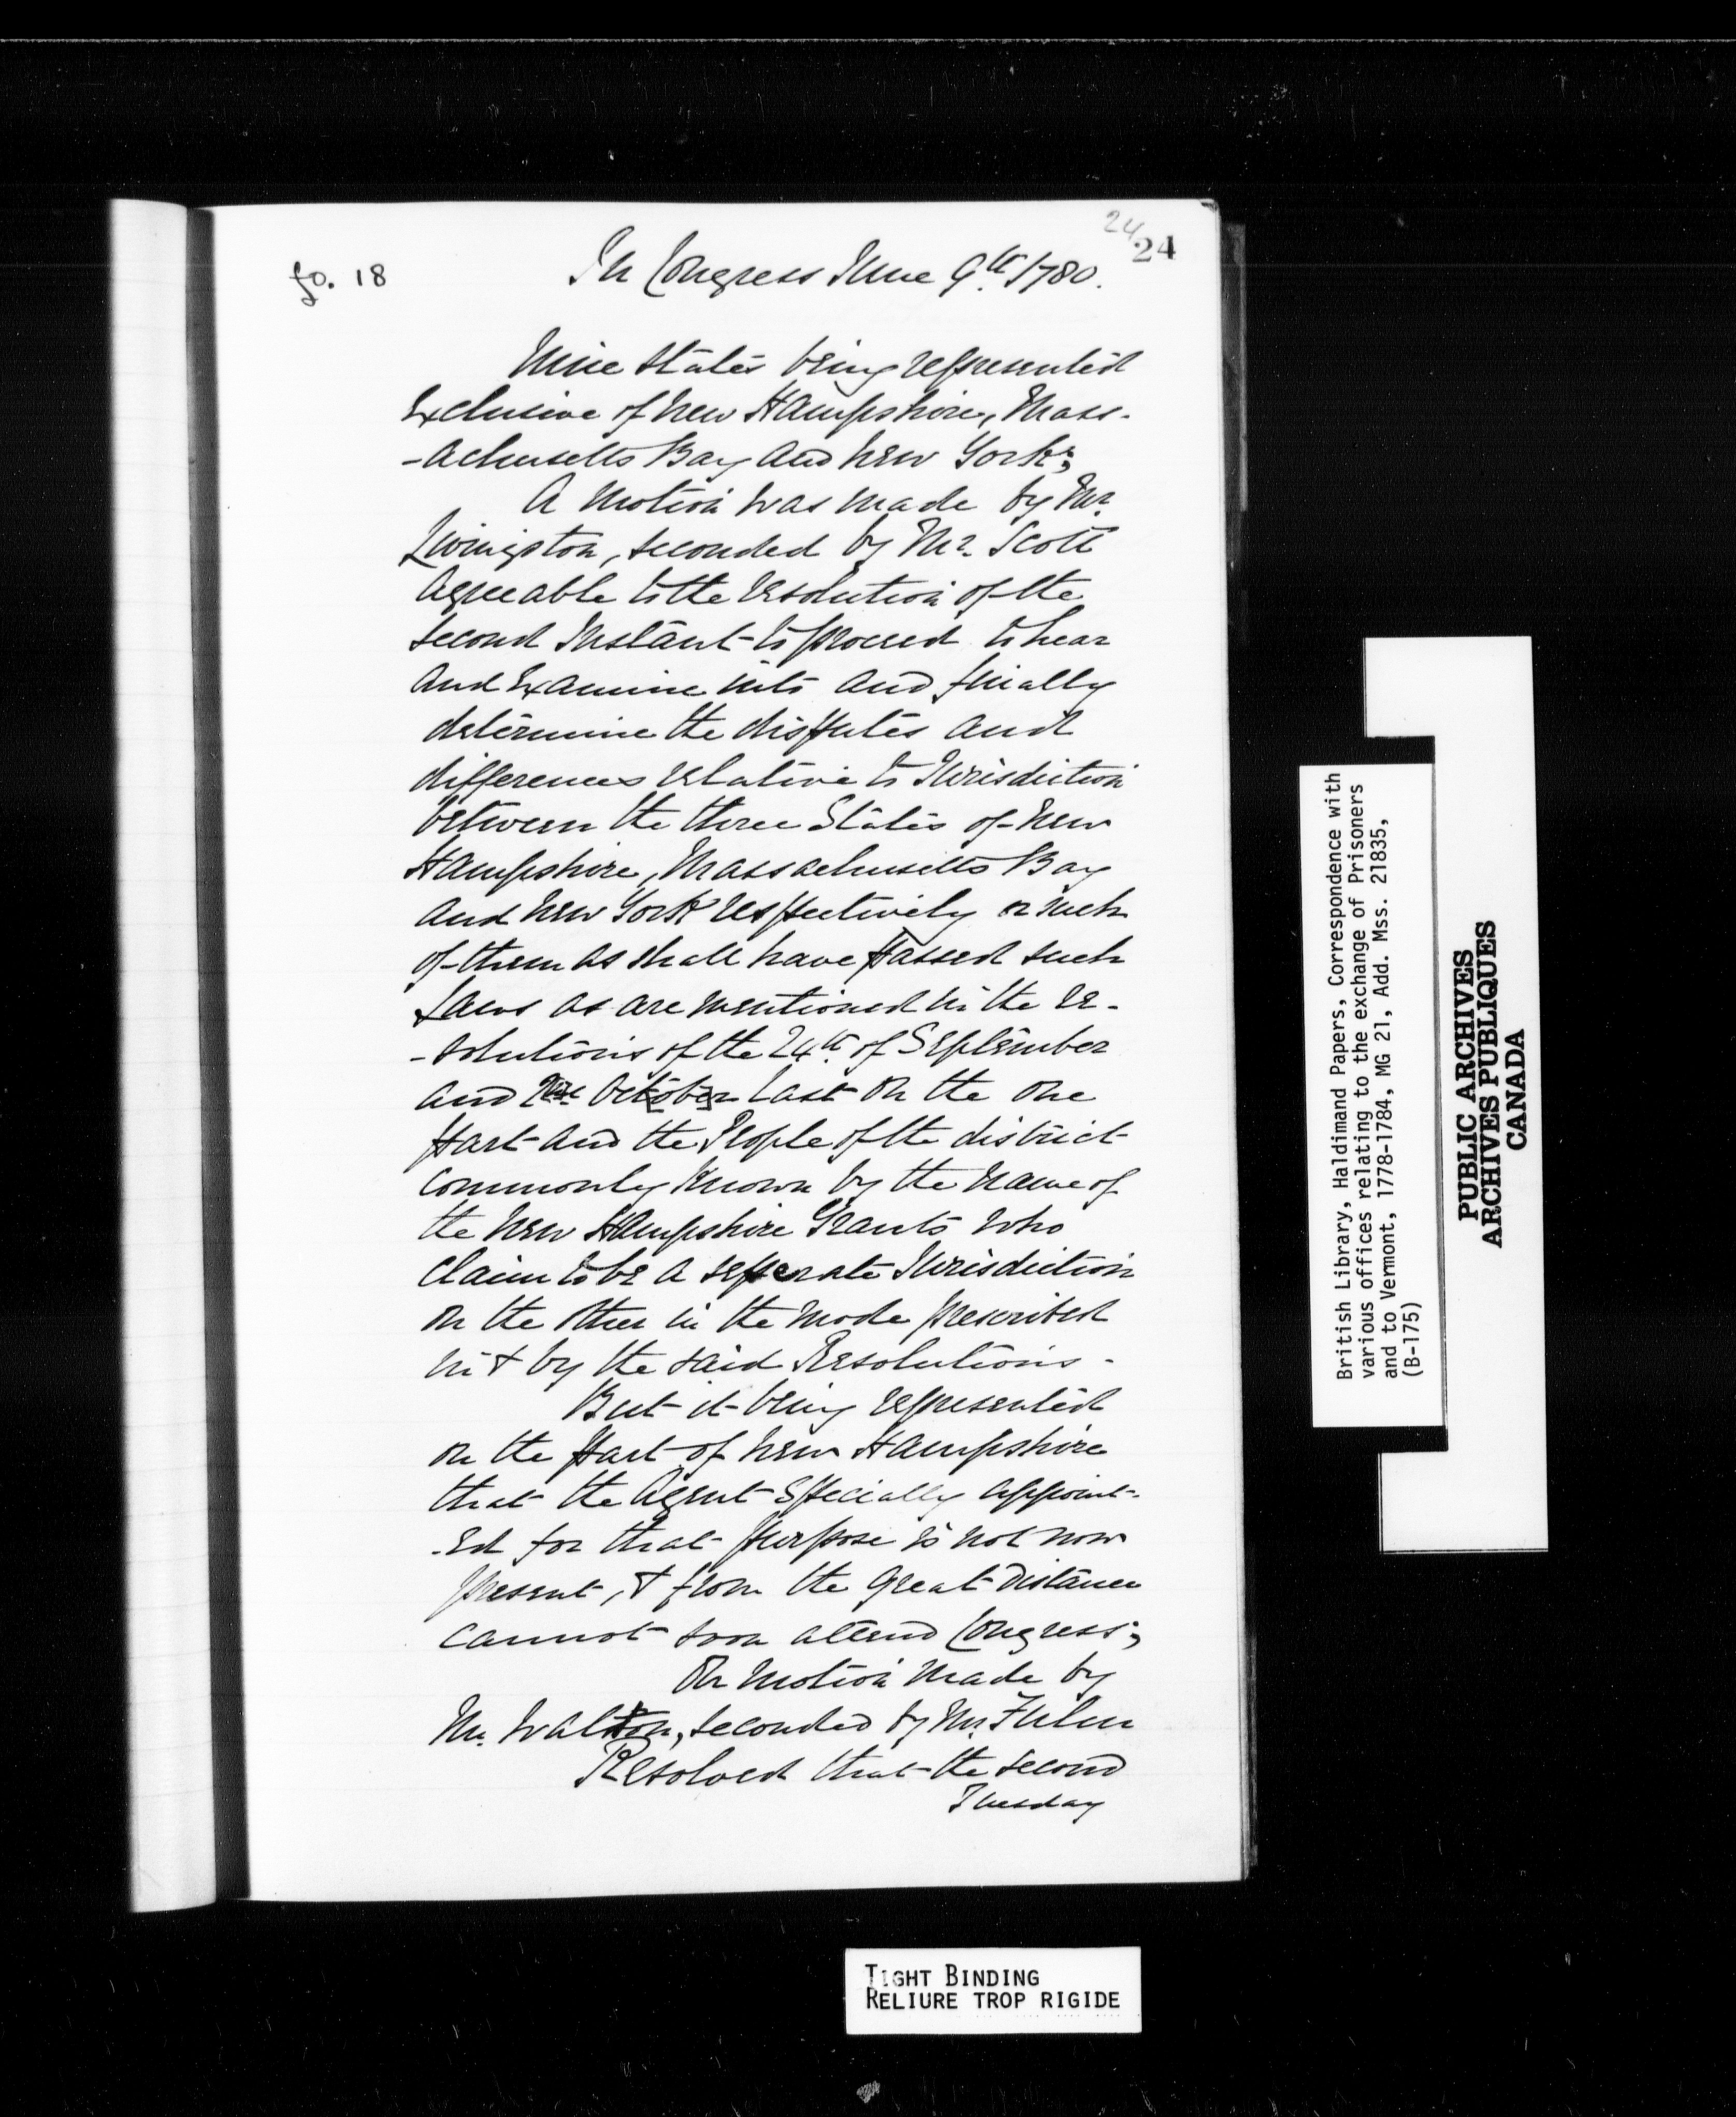 24
24
fo. 18
In Congress June 9th 1780.
Nine States being represented
Exclusive of New Hampshire, Mass-
-achusetts Bay and New York;
A Motion was made by Mr.
Livingston, seconded by Mr. Scott
Agreeable to the resolution of the
second Instant to proceed to hear
and Examine into and finally
determine the disputes and
differences relative to Jurisdiction
between the three States of New
Hampshire, Massachusetts Bay
and New York respectively or such
of them as shall have passed such
Laws as are mentioned in the re-
-solutions of the 24th of September
and 2nd October last on the one
part and the People of the district
commonly known by the name of
the New Hampshire Grants who
claim to be a seperate Jurisdiction
on the other in the mode prescribed
in & by the said Resolutions.
But it being represented
on the part of New Hampshire
that the Agent Specially appoint-
-ed for that purpose is not now
present, & from the great distance
cannot soon attend Congress;
On motion made by
Mr. Walton, seconded by Mr.
Resolved that the second
Tuesday
British Library, Haldimand Papers, Correspondence with
various offices relating to the exchange of Prisoners
and to Vermont, 1778-1784, MG 21, Add. Mss. 21835,
(B-175)
PUBLIC ARCHIVES
ARCHIVES PUBLIQUES
CANADA
TIGHT BINDING
RELIURE TROP RIGIDE